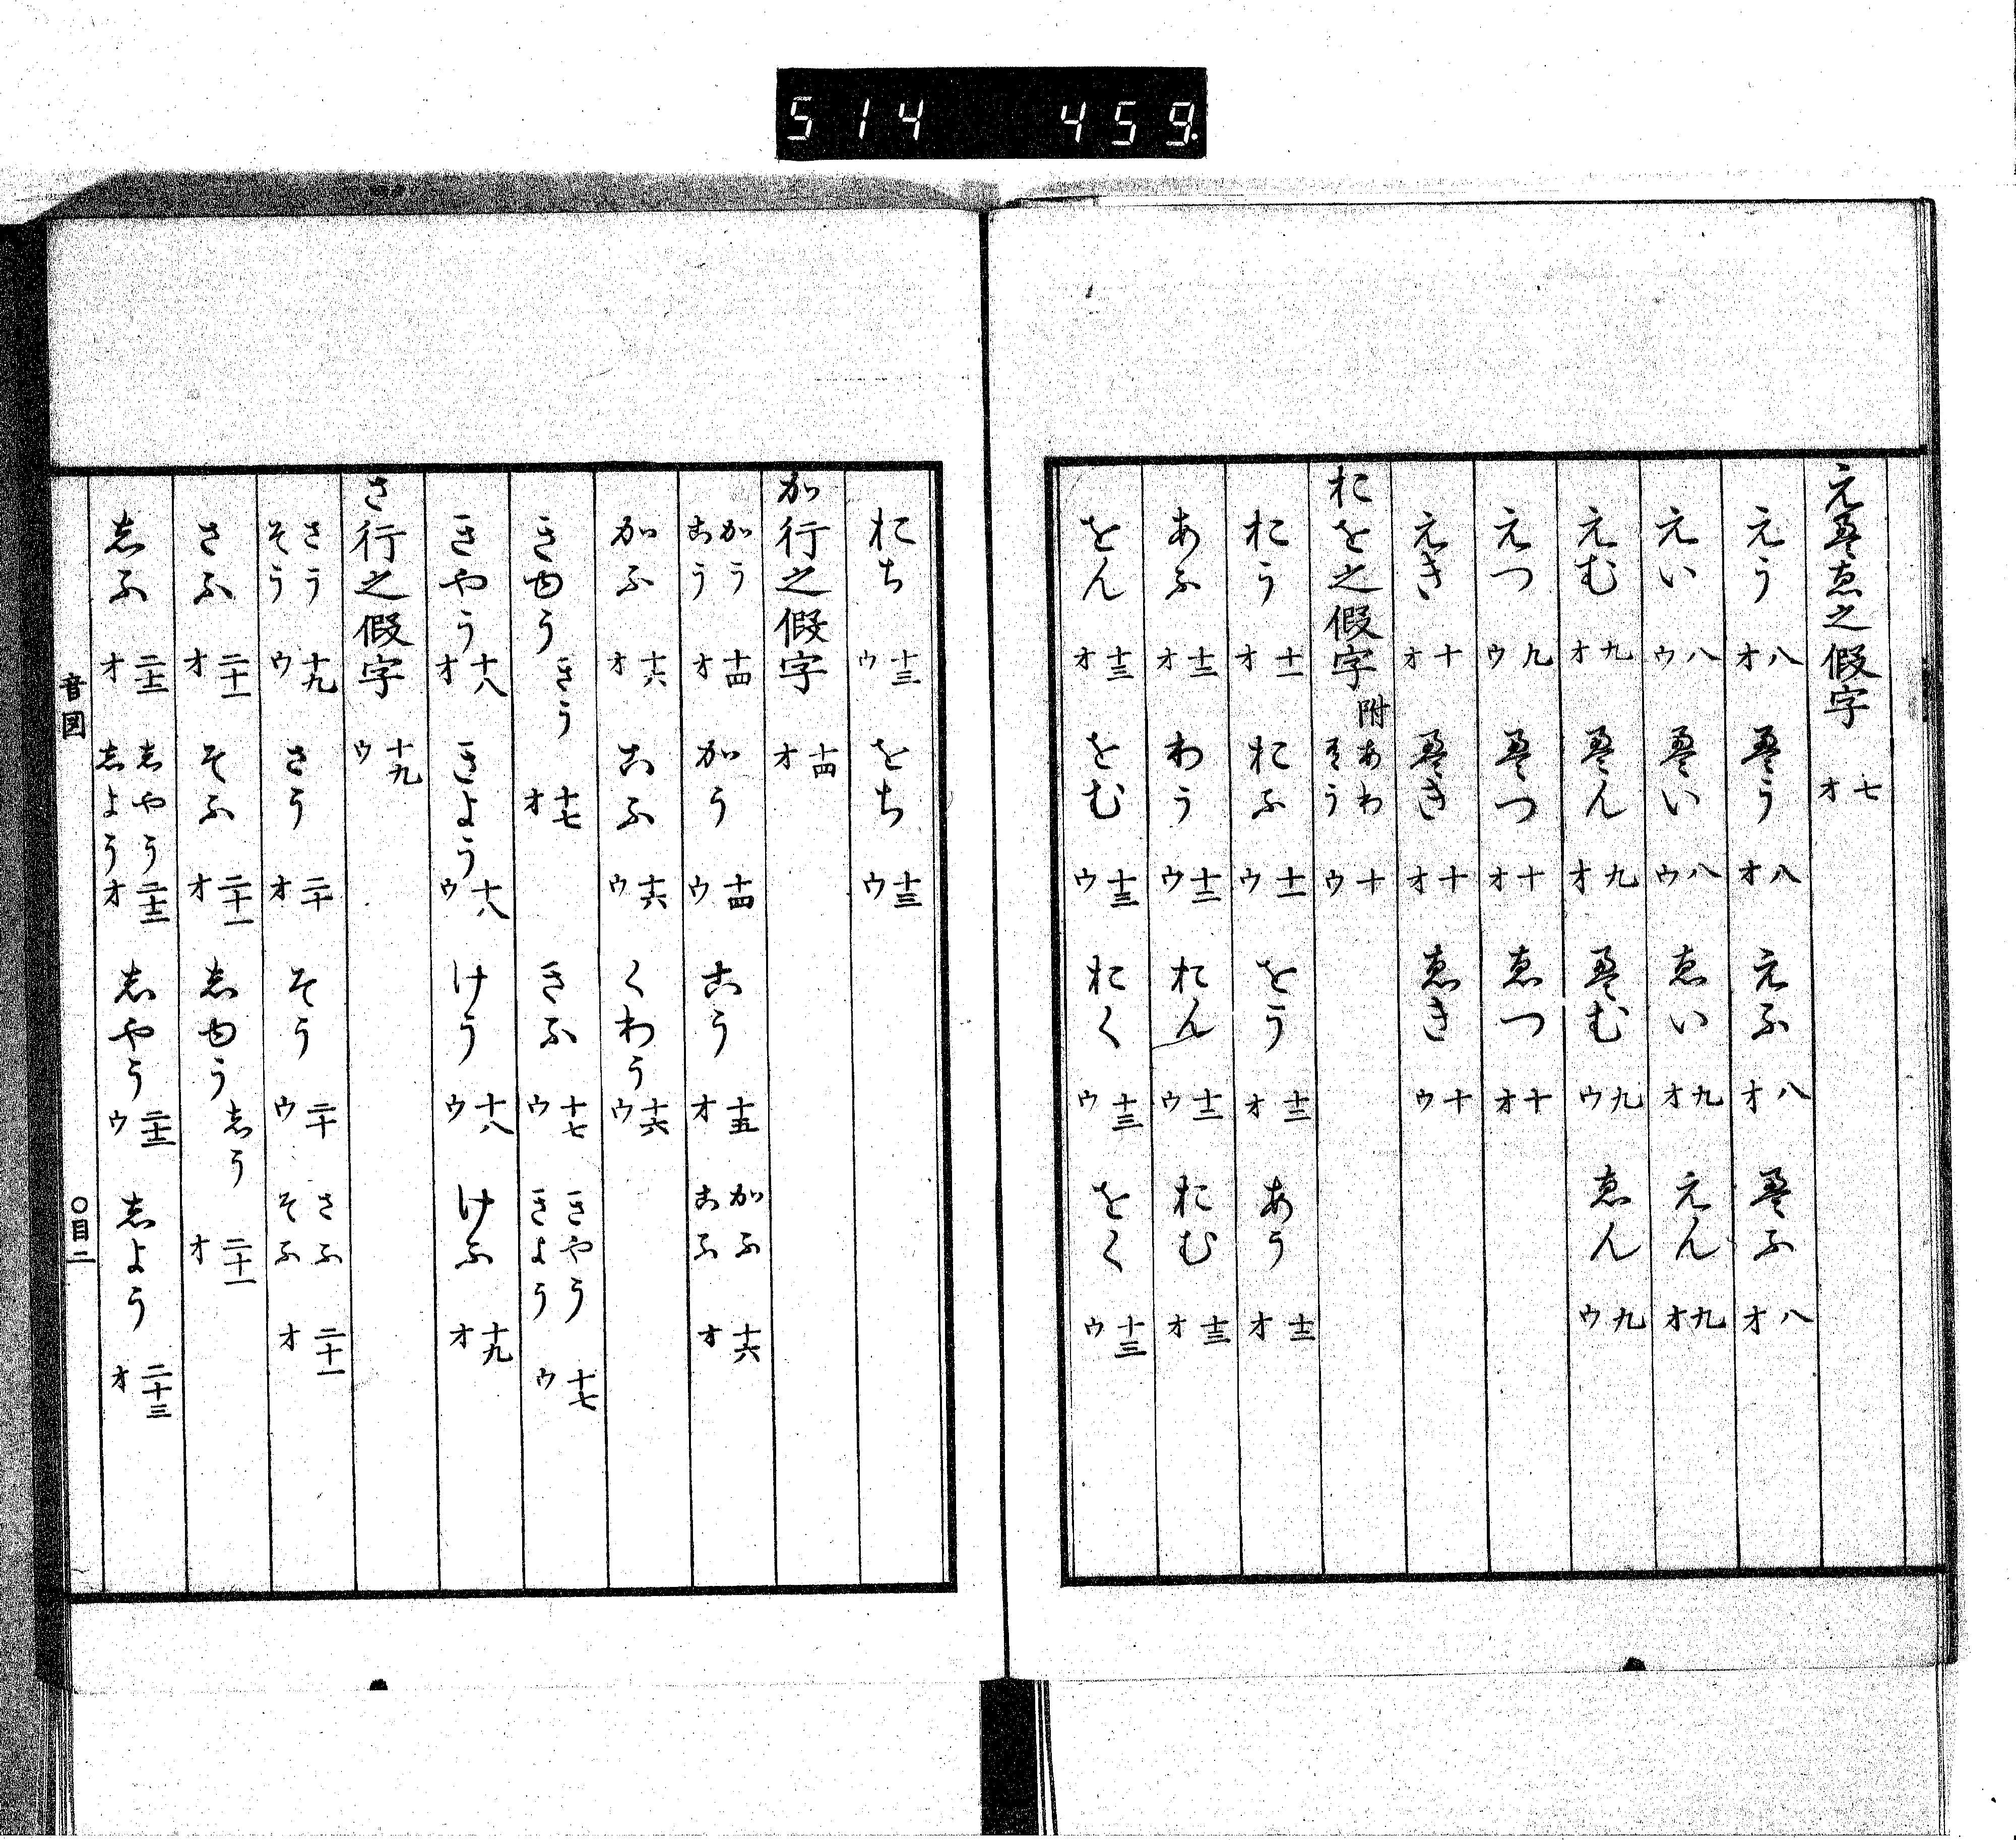 514 459
え盈ゑ之假字 七オ
えう 八オ 盈う 八オ えふ 八オ 盈ふ 八オ
えい 八ウ 盈い 八ウ ゑい 九オ えん 九オ
えむ 九オ 盈ん 九オ 盈む 九ウ ゑん 九ウ
えつ 九ウ 盈つ 十オ ゑつ 十オ
えき 十オ 盈き 十オ ゑき 十ウ
おを之假字 附あわ う 十ウ
おう 十一オ おふ 十一ウ をう 十二オ あう 十二オ
あふ 十二オ わう 十二ウ おん 十二ウ おむ 十三オ
をん 十三オ をむ 十三ウ おく 十三ウ をく 十三ウ
おち 十三ウ をち 十三ウ
か行之假字 十四オ
かう こう 十四オ かう 十四ウ こう 十五オ かふ こふ 十六オ
かふ 十六オ こふ 十六ウ くわう 十六ウ
きゆう きう 十七オ きふ 十七ウ きやう きよう 十七ウ
きやう 十八オ きよう 十八ウ けう 十八ウ けふ 十九オ
さ行之假字 十九ウ
さう そう 十九ウ さう 二十オ そう 二十ウ さふ そふ 二十一オ
さふ 二十一オ そふ 二十一オ しゆう しう 二十一オ
しふ 二十二オ しやう しよう 二十二オ しやう 二十二ウ しよう 二十三オ
音図 〇目二